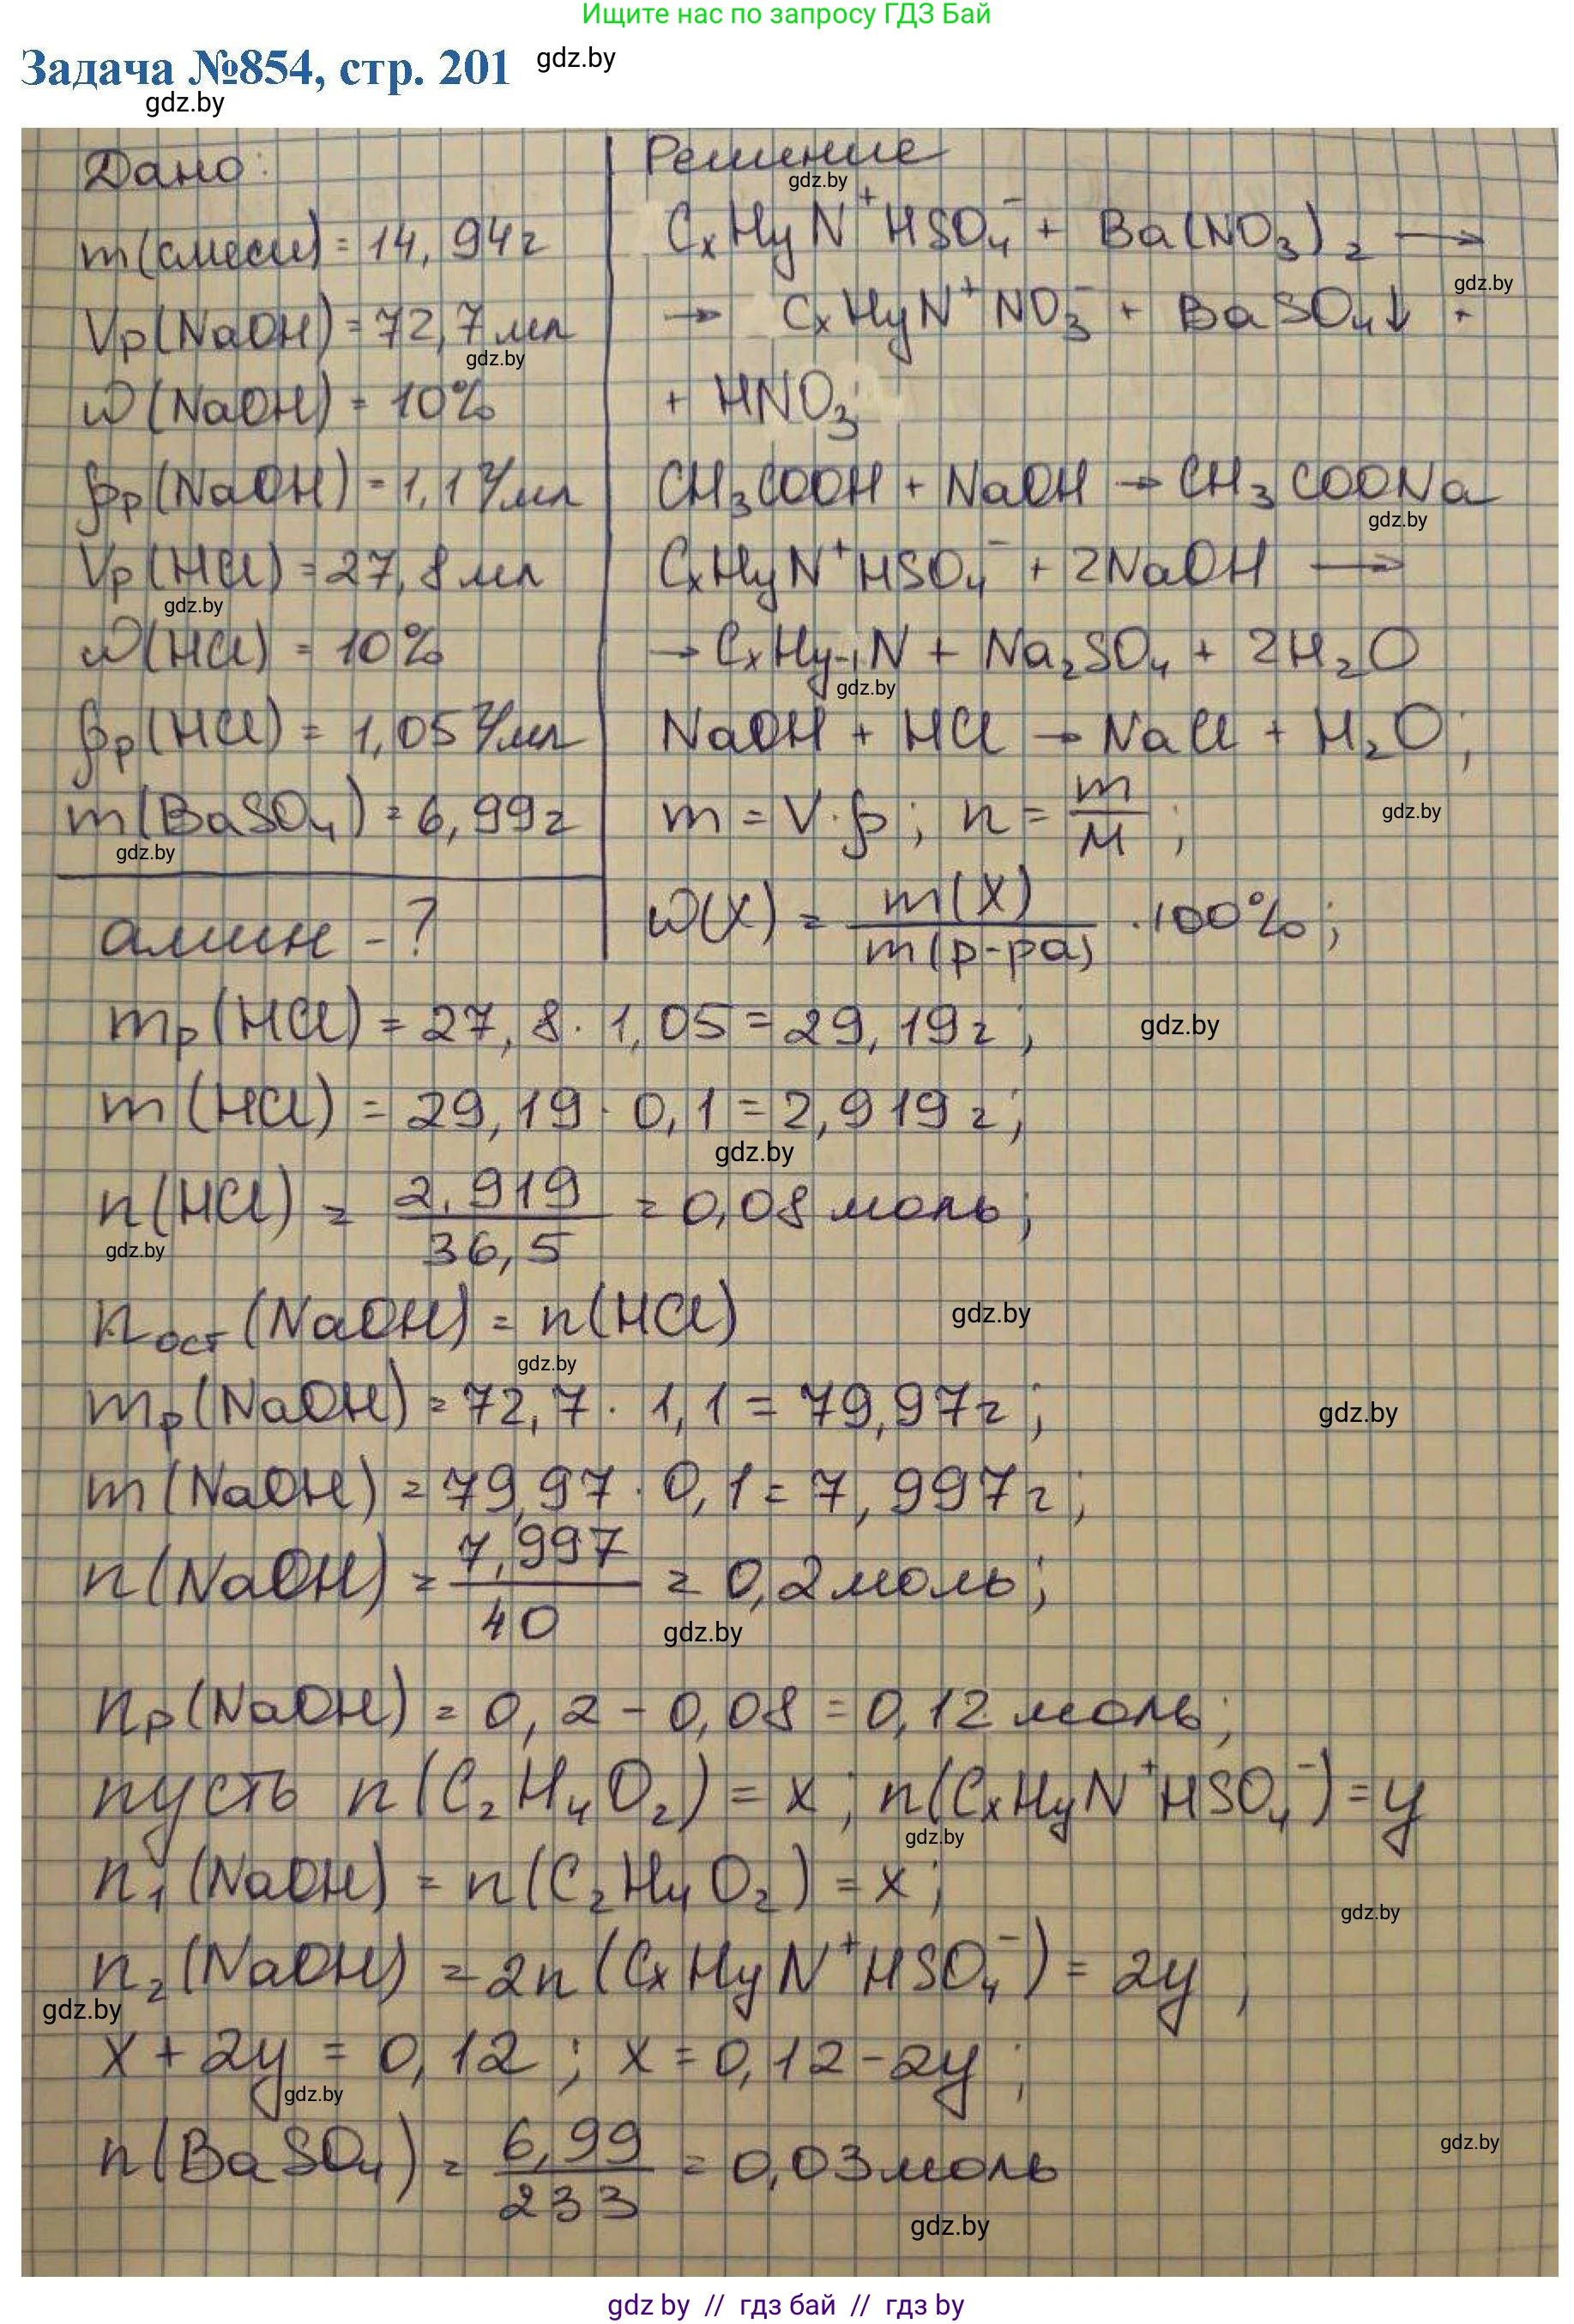 Ищите нас по запросу ГДЗ Бай
Задача №854, стр. 201 gdz.by
gdz.by
Дано:
m(смеси) = 14,94г
Vр(NaOH) = 72,7 мл
gdz.by
ω(NaOH) = 10%
ρр(NaOH) = 1,1 г/мл
Vр(HCl) = 27,8 мл
gdz.by
ω(HCl) = 10%
ρр(HCl) = 1,05 г/мл
m(BaSO₄) = 6,99г
gdz.by
амин - ?
Решение
gdz.by
CₓHᵧN⁺HSO₄⁻ + Ba(NO₃)₂ →
gdz.by
→ CₓHᵧN⁺NO₃⁻ + BaSO₄↓ +
+ HNO₃
CH₃COOH + NaOH → CH₃COONa
gdz.by
CₓHᵧN⁺HSO₄⁻ + 2NaOH →
→ CₓHᵧ₋₁N + Na₂SO₄ + 2H₂O
gdz.by
NaOH + HCl → NaCl + H₂O;
m = V·ρ; n = m/M;
gdz.by
ω(X) = m(X)/m(р-ра) · 100%;
mр(HCl) = 27,8 · 1,05 = 29,19г;
gdz.by
m(HCl) = 29,19 · 0,1 = 2,919г;
gdz.by
n(HCl) = 2,919/36,5 = 0,08 моль;
gdz.by
nост(NaOH) = n(HCl)
gdz.by
gdz.by
mр(NaOH) = 72,7 · 1,1 = 79,97г;
gdz.by
m(NaOH) = 79,97 · 0,1 = 7,997г;
n(NaOH) = 7,997/40 = 0,2 моль;
gdz.by
nр(NaOH) = 0,2 - 0,08 = 0,12 моль;
пусть n(C₂H₄O₂) = x; n(CₓHᵧN⁺HSO₄⁻) = y
gdz.by
n₁(NaOH) = n(C₂H₄O₂) = x;
gdz.by
n₂(NaOH) = 2n(CₓHᵧN⁺HSO₄⁻) = 2y;
gdz.by
x + 2y = 0,12; x = 0,12 - 2y;
gdz.by
n(BaSO₄) = 6,99/233 = 0,03 моль
gdz.by
gdz.by
gdz by // гдз бай // gdz by